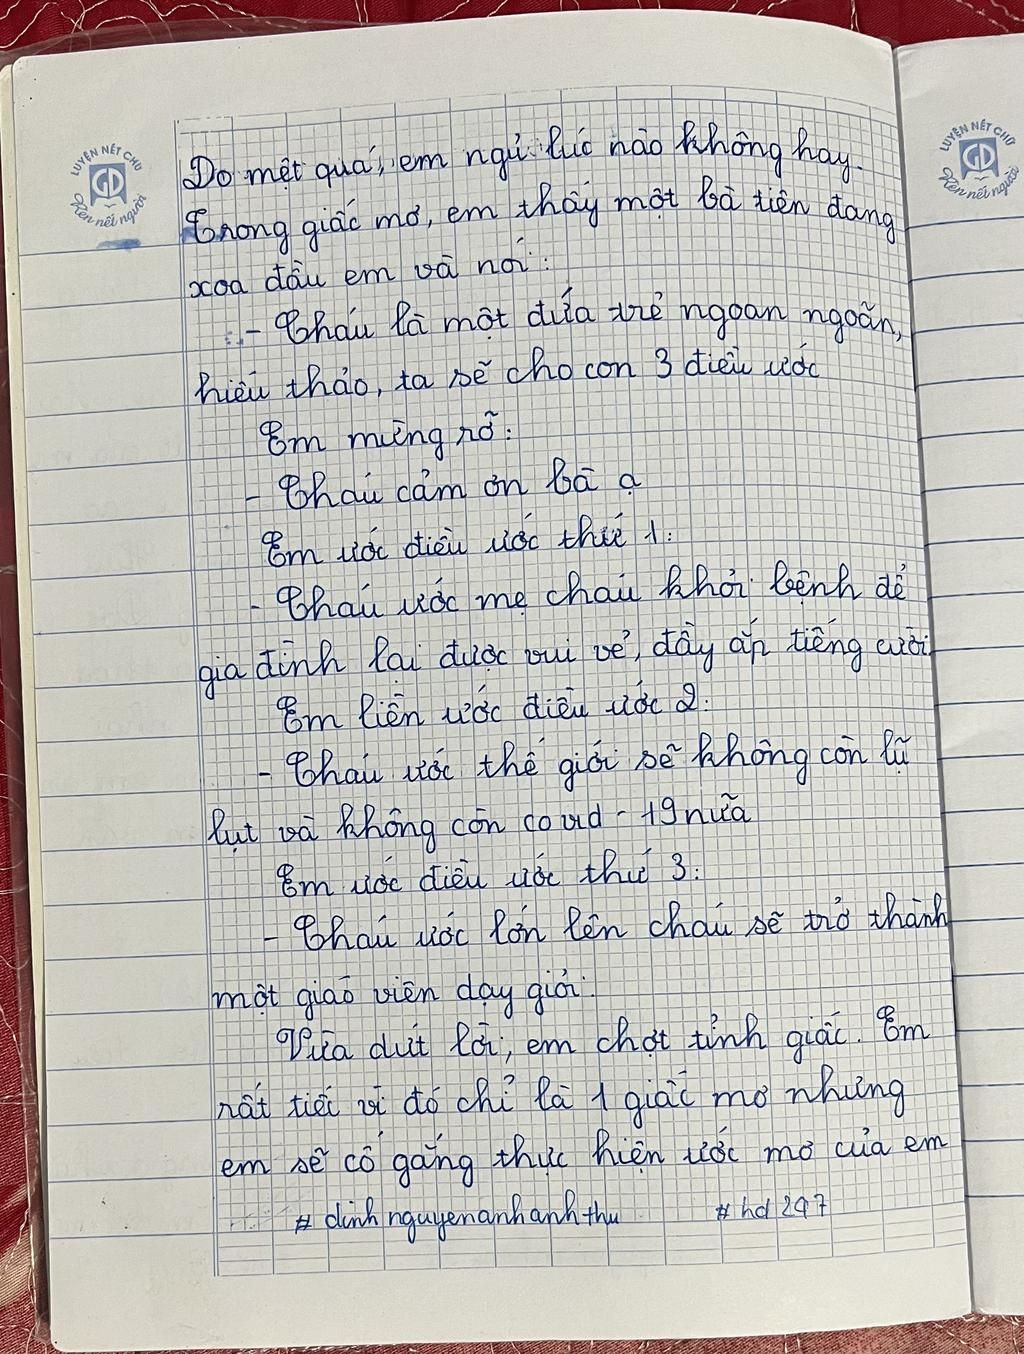 LUYỆN NÉT CHỮ
GD
Rèn nết người
LUYỆN NÉT CHỮ
GD
Rèn nết người
Do mệt quá, em ngủ lúc nào không hay.
Trong giấc mơ, em thấy một bà tiên đang
xoa đầu em và nói:
- Cháu là một đứa trẻ ngoan ngoãn,
hiếu thảo, ta sẽ cho con 3 điều ước
Em mừng rỡ:
- Cháu cảm ơn bà ạ
Em ước điều ước thứ 1:
- Cháu ước mẹ cháu khỏi bệnh để
gia đình lại được vui vẻ, đầy ắp tiếng cười.
Em liền ước điều ước 2:
- Cháu ước thế giới sẽ không còn lũ
lụt và không còn covid - 19 nữa
Em ước điều ước thứ 3:
- Cháu ước lớn lên cháu sẽ trở thành
một giáo viên dạy giỏi.
Vừa dứt lời, em chợt tỉnh giấc. Em
rất tiếc vì đó chỉ là 1 giấc mơ nhưng
em sẽ cố gắng thực hiện ước mơ của em
# dinhnguyenanhanhthu # hd 297